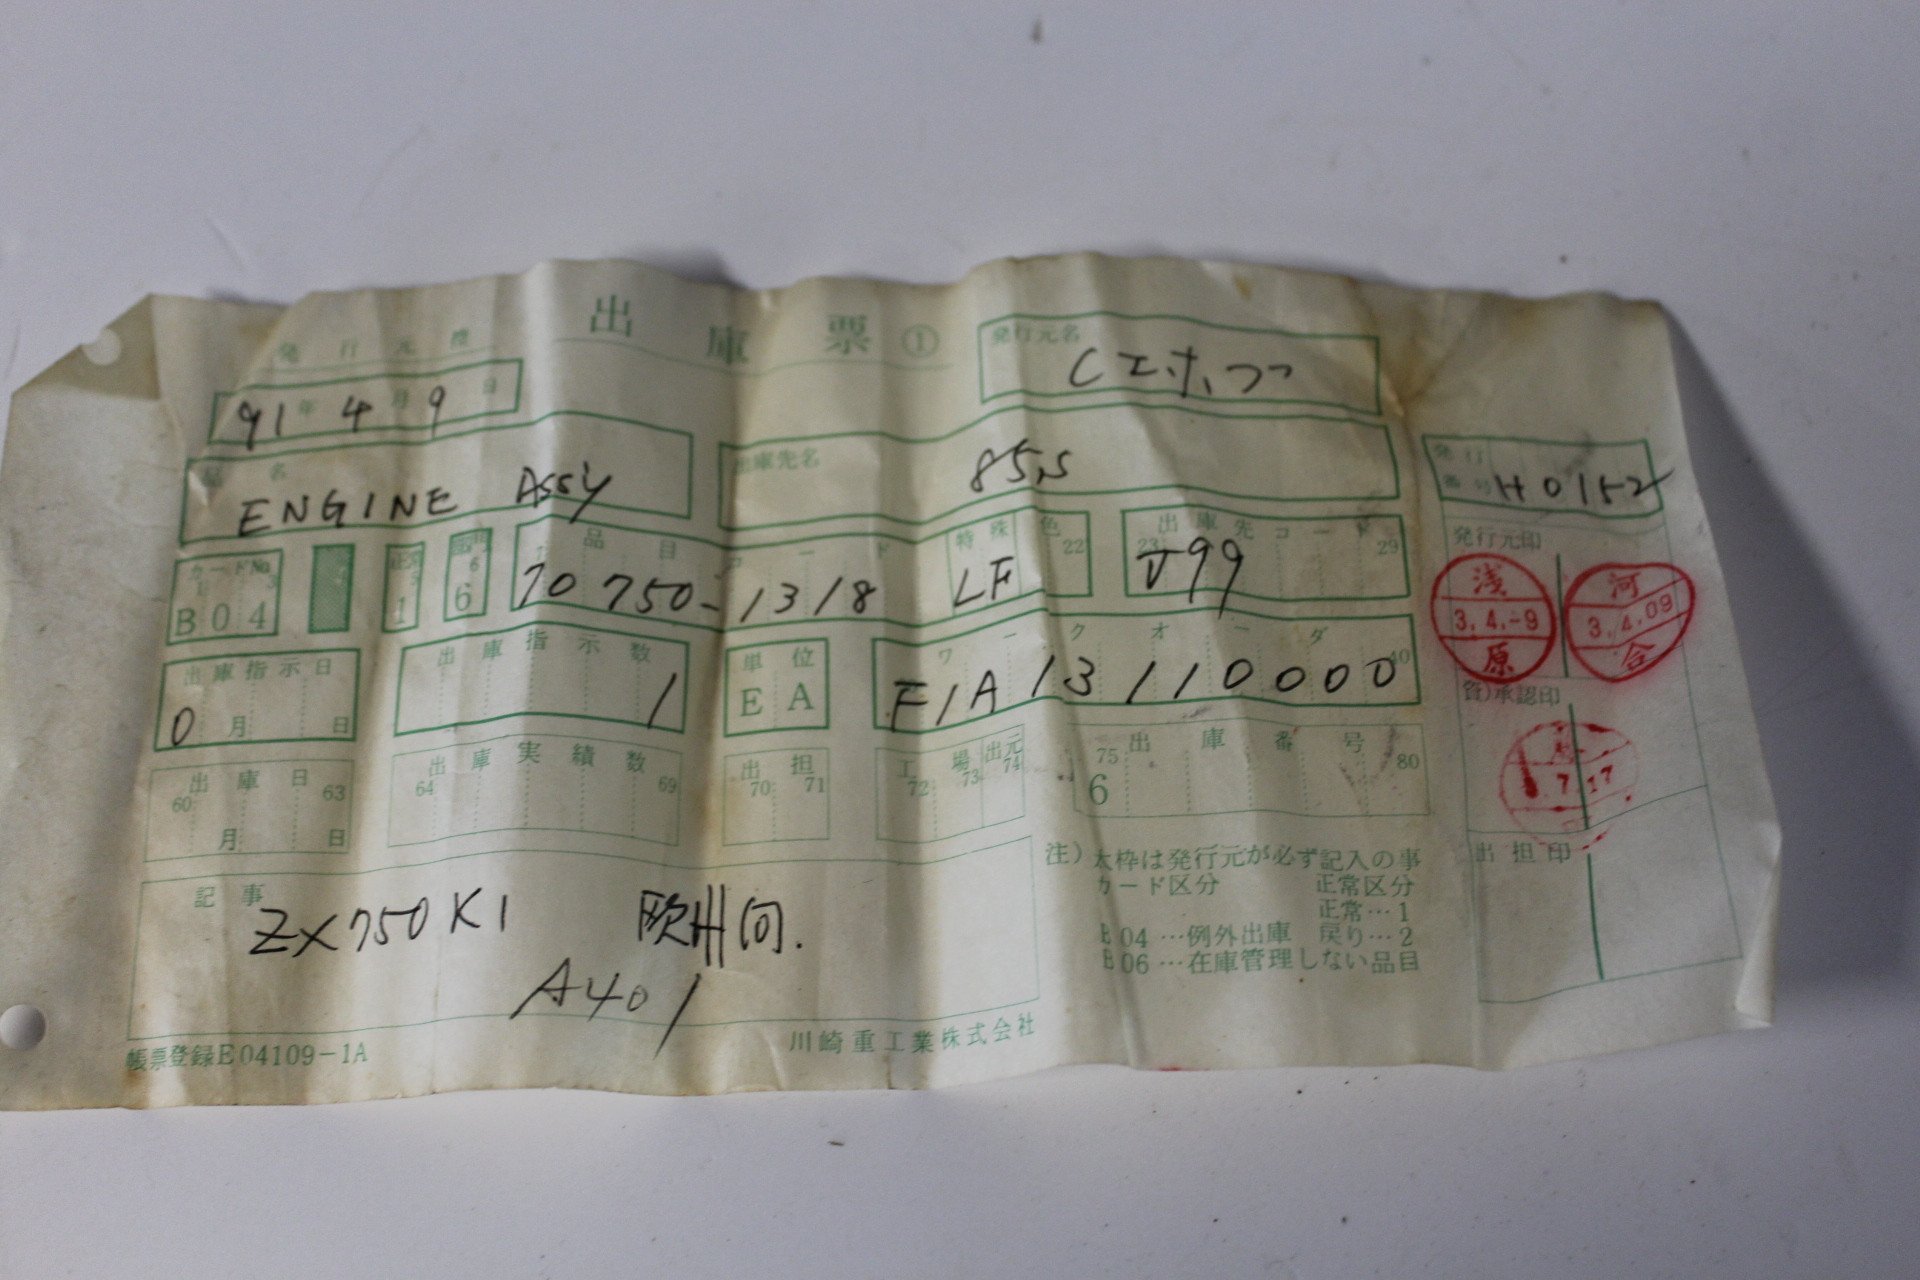 出庫票①
発行元控
91年4月9日
発行元名
品名
ENGINE Assy
出庫先名
85,5
発行番号 H0152
カードNo.
1 3
B04
5
1
6
6
品目コード
70750-1318
特殊色 22
LF
23 出庫先コード 29
J99
発行元印
浅 3.4.-9 原
河 3.4.09 合
出庫指示日
0月 日
出庫指示数
1
単位
EA
ワークオーダ 40
F1A13110000
管)承認印
7 17
出庫日
60 63
月 日
出庫実績数
64 69
出担
70 71
工場 出元
72 73 74
出庫番号
75 80
6
出担印
記事
ZX750K1 欧州向.
A401
注) 太枠は発行元が必ず記入の事
カード区分 正常区分
正常…1
B04…例外出庫 戻り…2
B06…在庫管理しない品目
帳票登録E04109-1A
川崎重工業株式会社